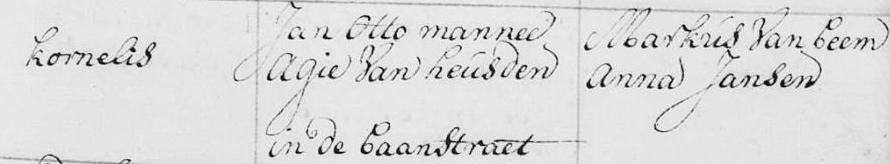 kornelis
Jan Otto mannee
Agie Van heusden
in de baanstraet
Markus Van beem
Anna Jansen